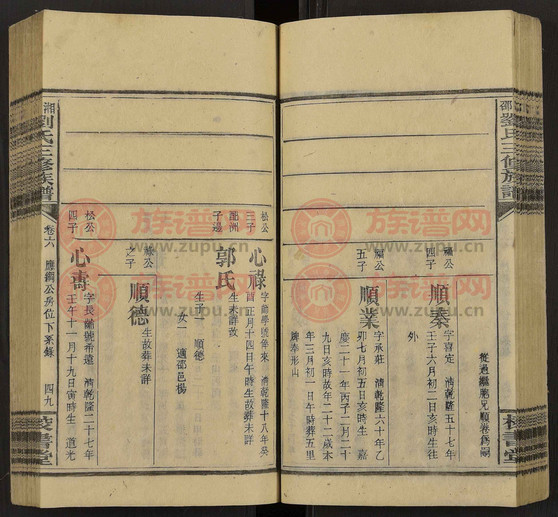 邵
劉氏三修族譜
從邁繼胞兄順卷為嗣
福公
四子
順泰
字喜定 清乾隆五十七年
壬子六月初二日亥時生往
外
福公
五子
順業
字承莊 清乾隆六十年乙
卯七月初五日亥時生 嘉
慶二十一年丙子二月二十
九日亥時故年二十二歲本
年三月初一日午時葬五里
牌奉形山
松公
三子
心祿
淝洲
子邊
郭氏
生未詳改
清正月十四日午時生故葬未詳
生子一 順德
女一 適邵邑楊
祿公
之子
順德
生故葬未詳
松公
四子
心壽
字長 號希遠 清乾隆二十七年
壬午十一月十九日寅時生 道光
湘
劉氏三修族譜
卷六
應 公房位下系錄
四九
書堂
族谱网
www.zupu.cn
族谱网
www.zupu.cn